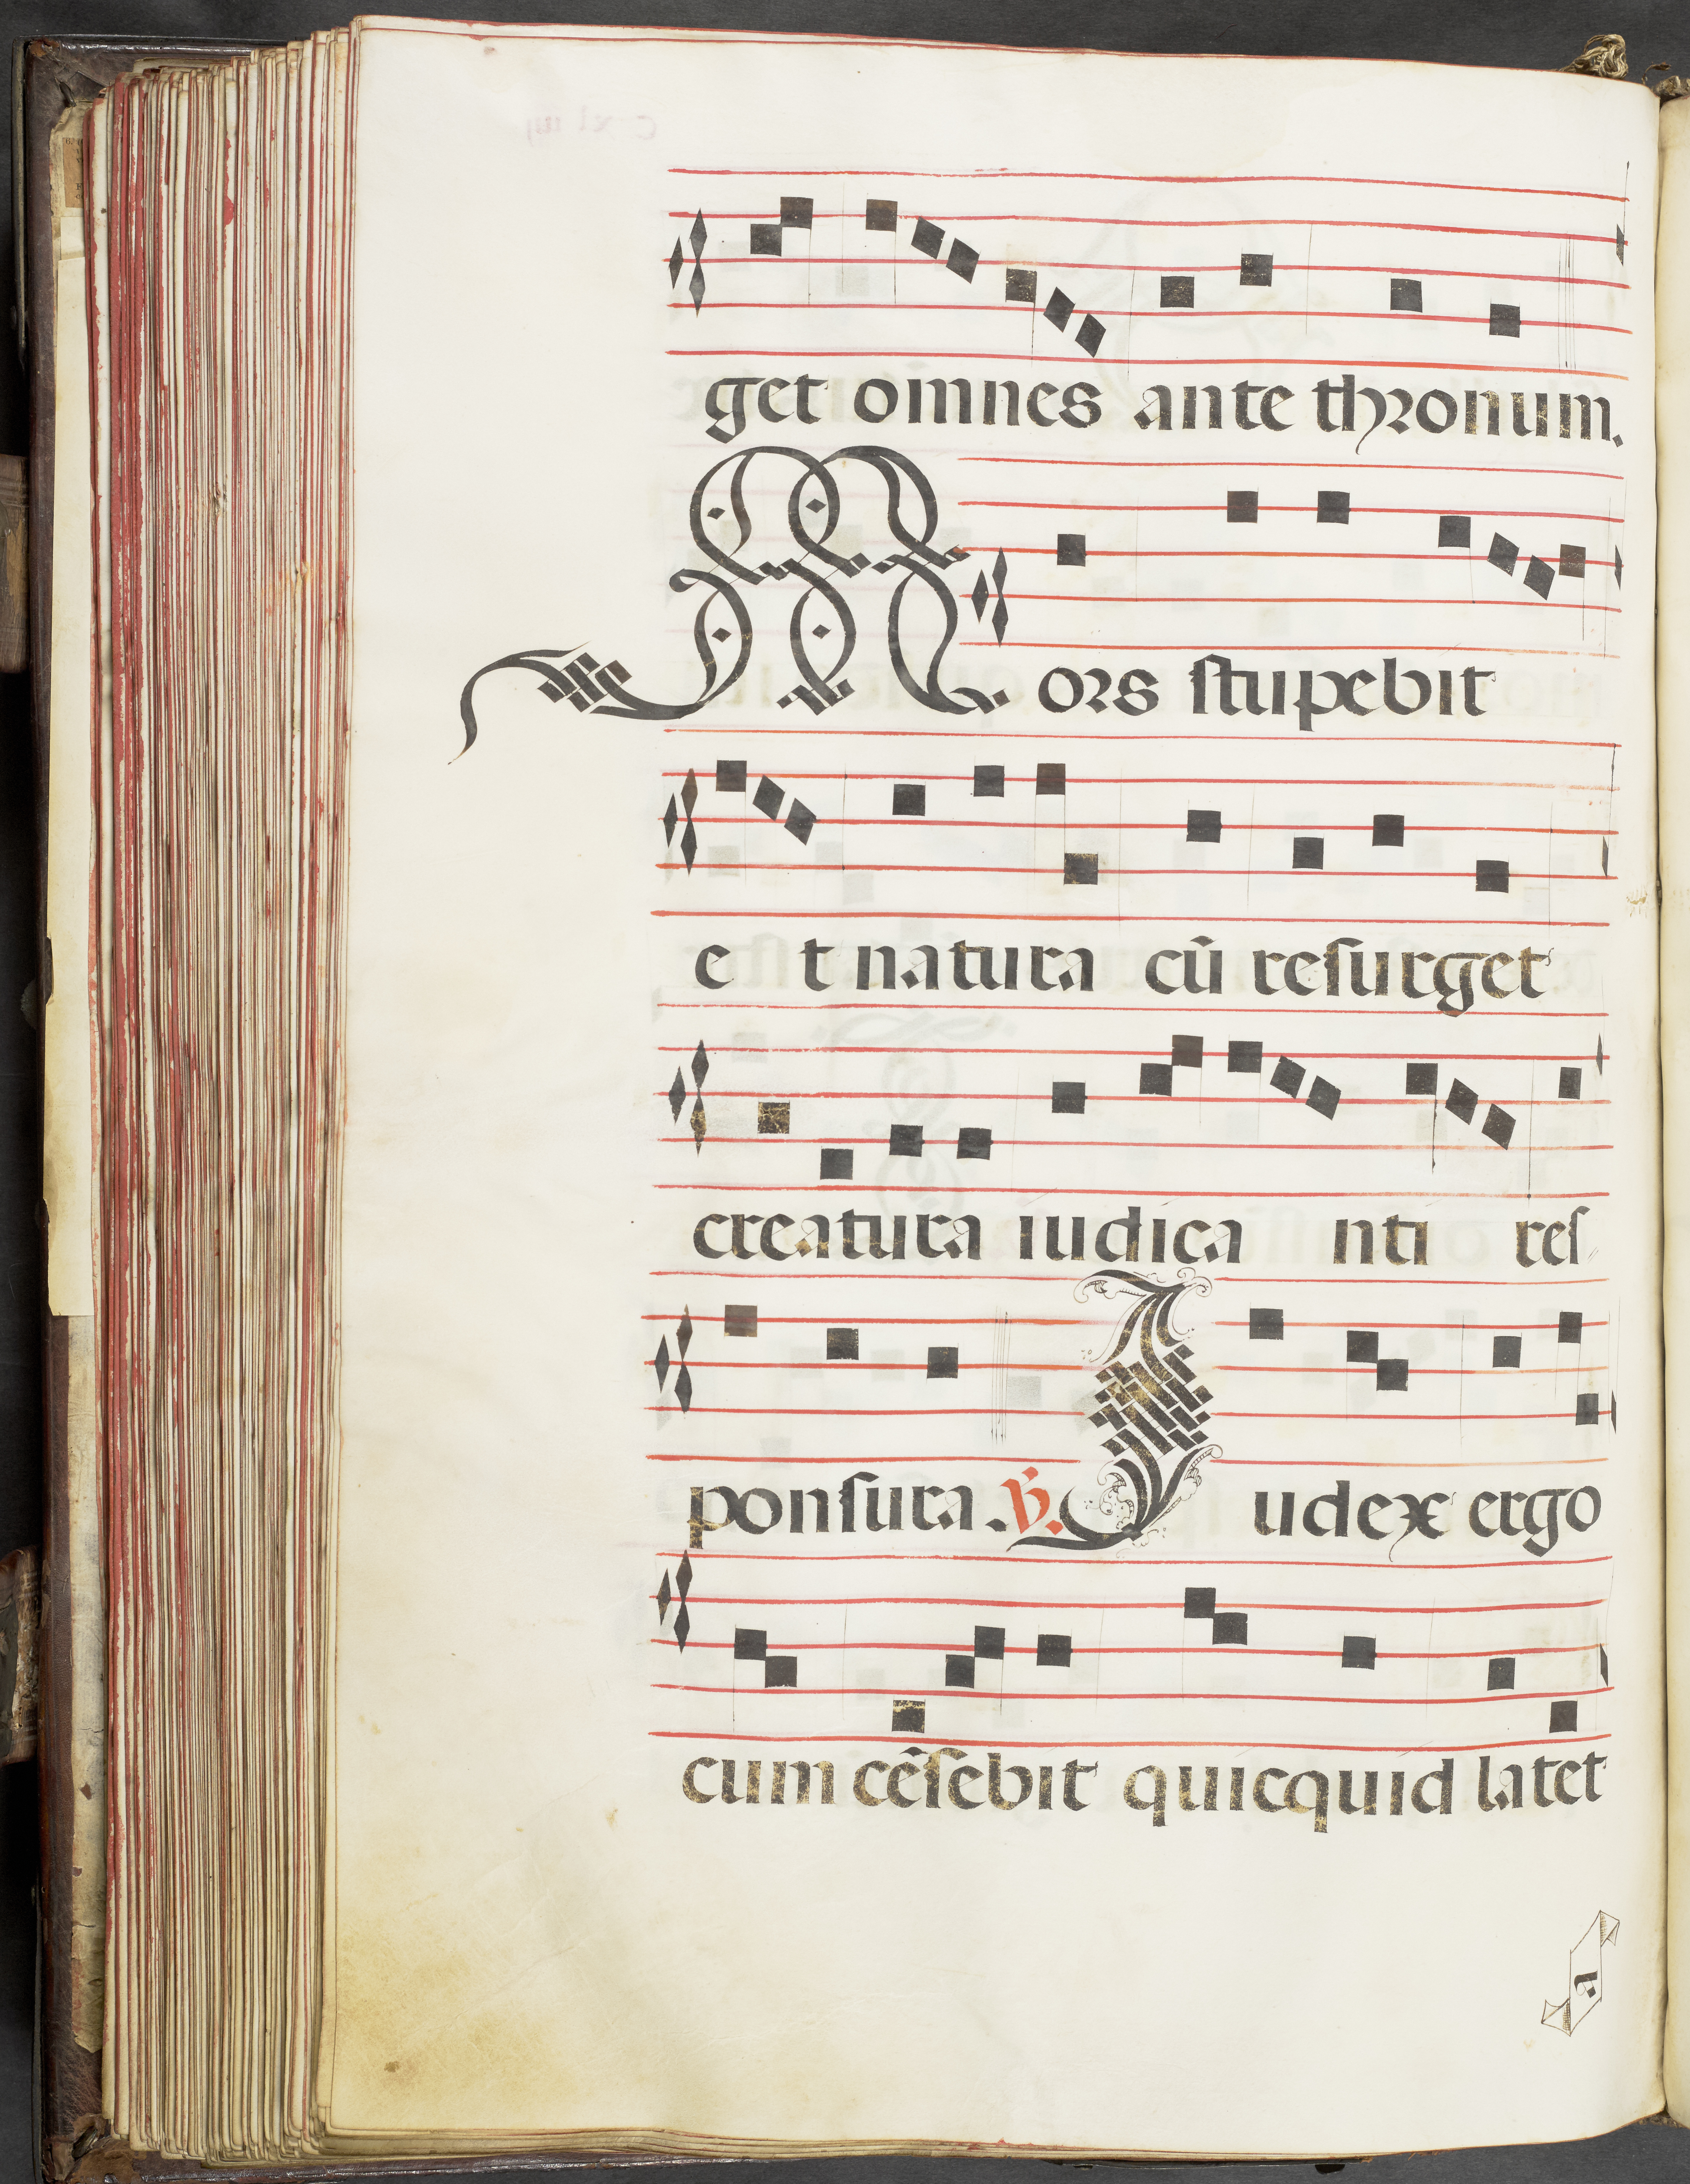 get omnes ante thronum.
Mors stupebit
e t natura cũ resurget
creatura iudica nti res
ponsura. ℣. Iudex ergo
cum cẽsebit quicquid latet
a